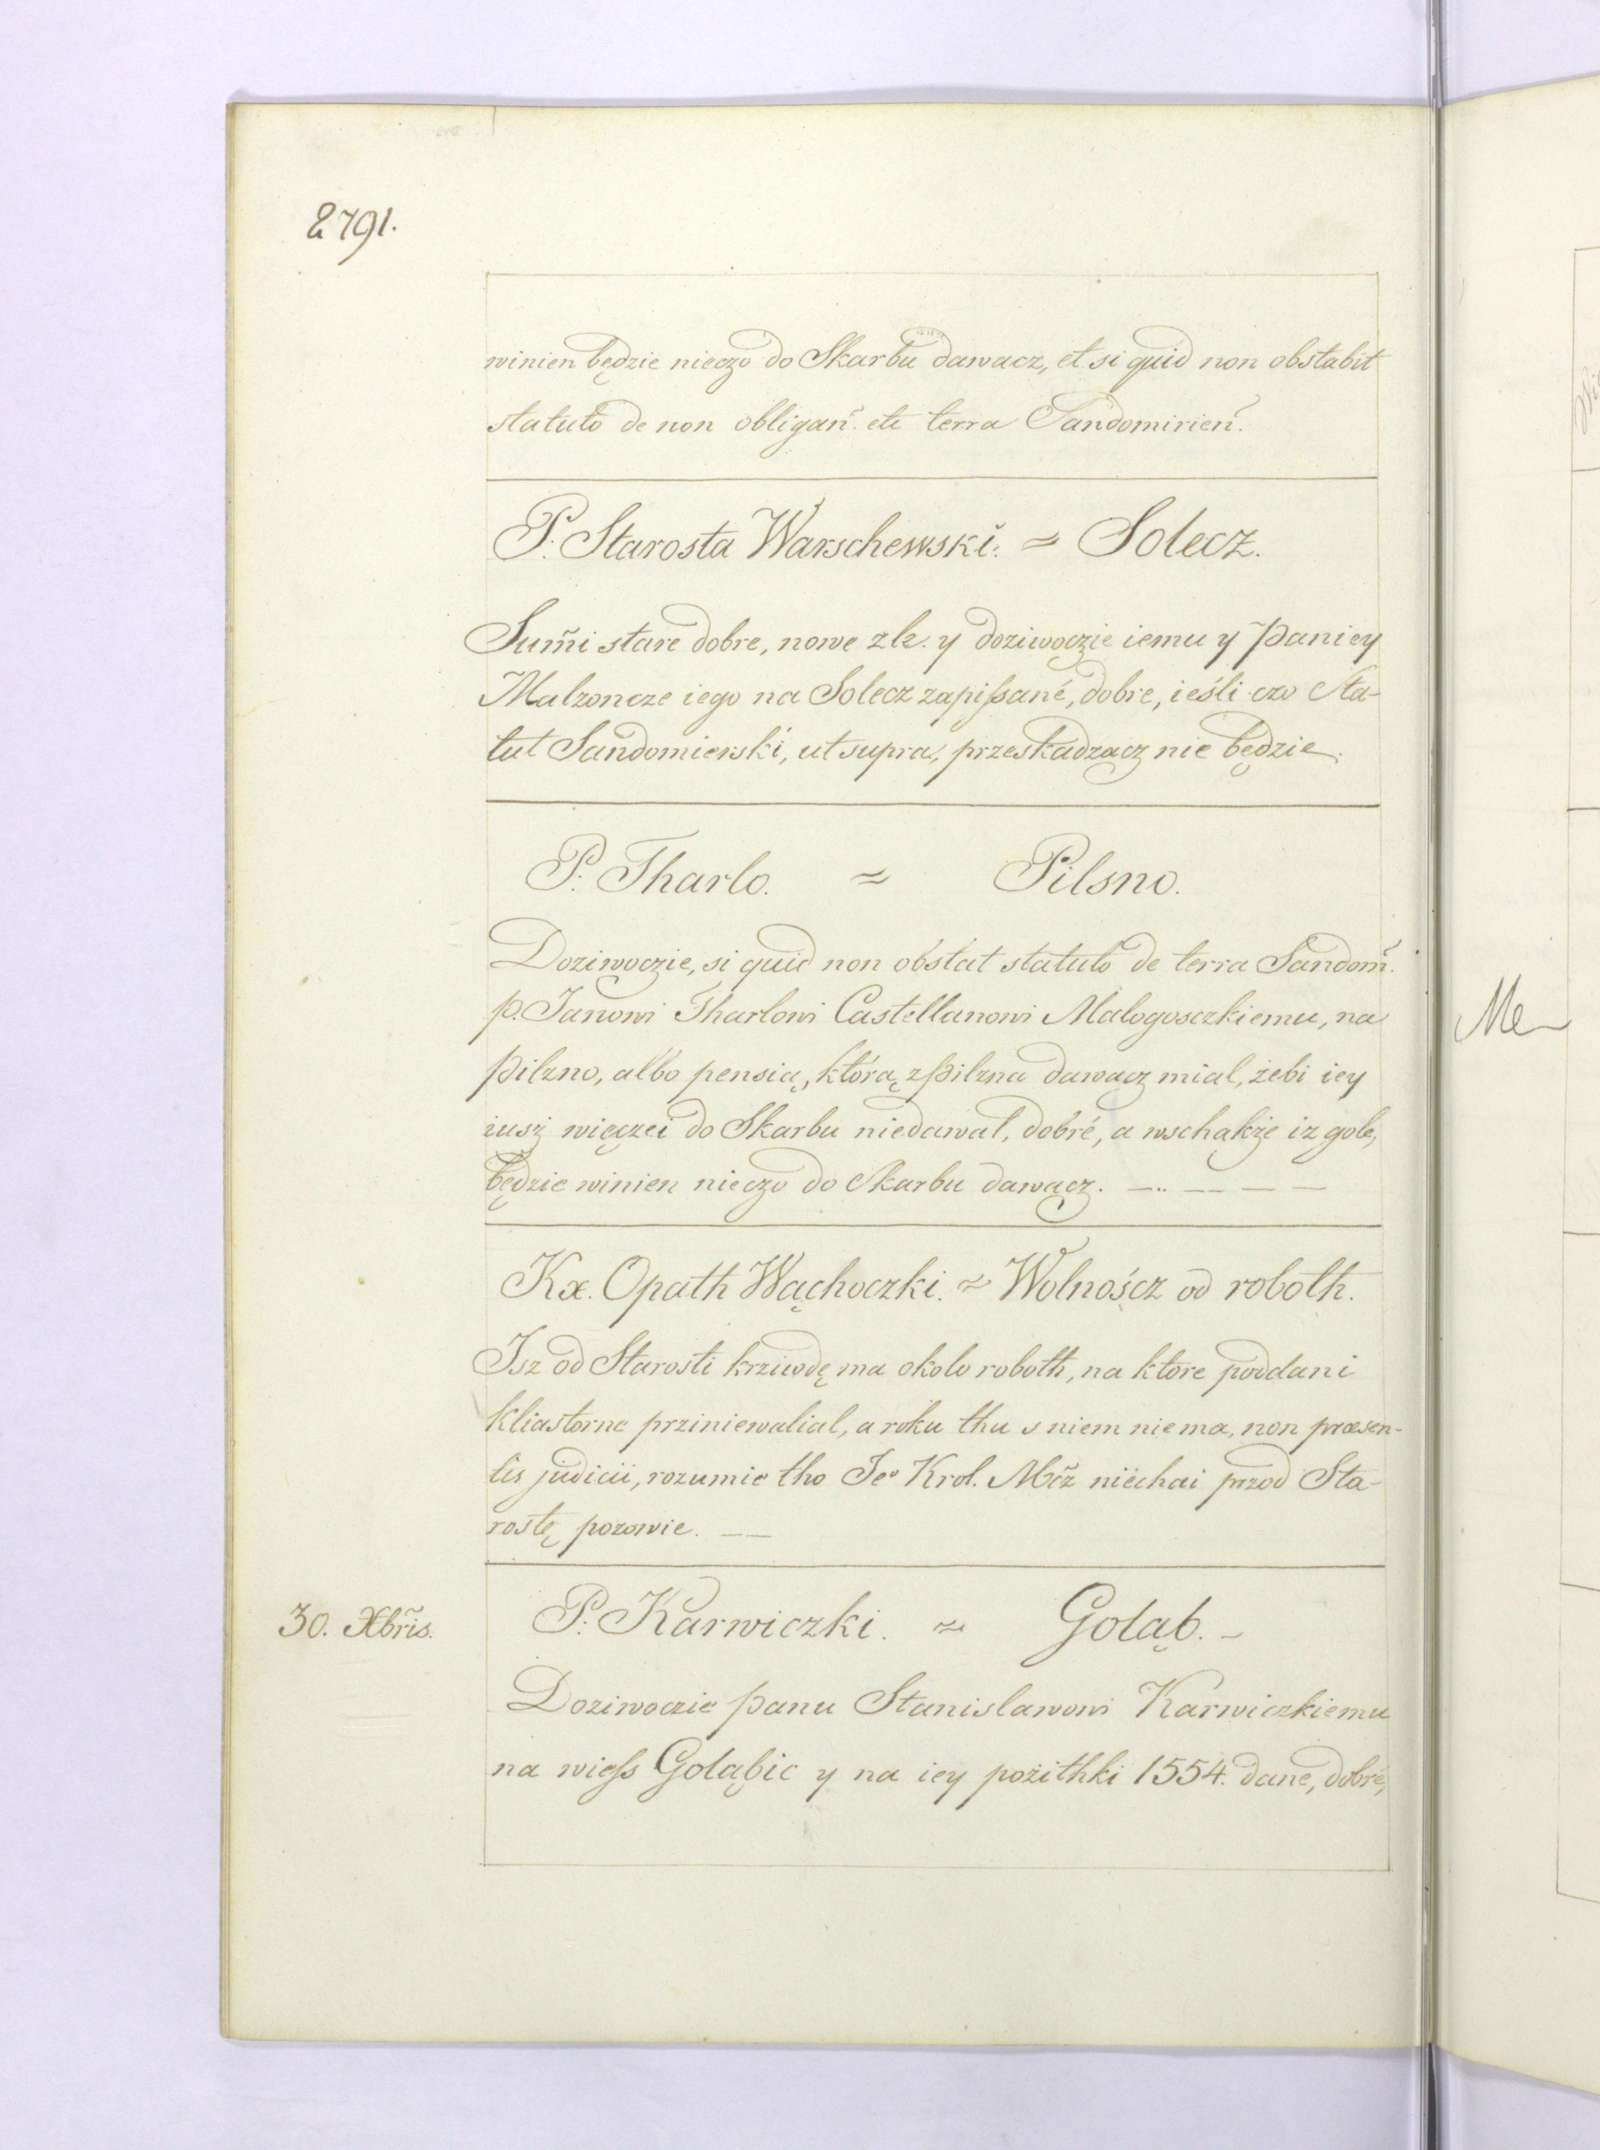 2791.
winien będzie nieczo do Skarbu dawacz, et si quid non obstabit
statuto de non obligań. etc terra Sandomirień.
P. Starosta Warschewski. ≈ Solecz.
Sum̃i stare dobre, nowe zle. y doziwoczie iemu y paniey
Malzoncze iego na Solecz zapißané, dobre, ieśli czo sta-
tut Sandomierski, ut supra, przeskadzącz nie będzie.
P. Tharlo. ≈ Pilsno.
Doziwoczie, si quid non obstat statuto de terra Sandom̃.
p. Janowi Tharlowi Castellanowi Malogosczkiemu, na
pilzno, albo pensią, którą z pilzna dawacz mial, żebi iey
iusz więczei do Skarbu niedawal, dobré, a wschakże iz gole,
będzie winien nieczo do skarbu dawącz. —.. — — —
Kx. Opath Wąchoczki. ≈ Wolnoścz od roboth.
Isz od Starosti krziwdę ma okolo roboth, na które poddani
kliastorne prziniewalial, a roku thu s niem nie ma, non præsen-
tis judicii, rozumie tho Jeo Krol. Mc̃z niechai przod Sta-
rostę pozowie. — —
30. Xbr̃is.
P. Karwiczki. ≈ Goląb. –
Doziwoczie panu Stanislawowi Karwiczkiemu
na wieß Goląbie y na iey pozithki 1554. dane, dobré,
Me